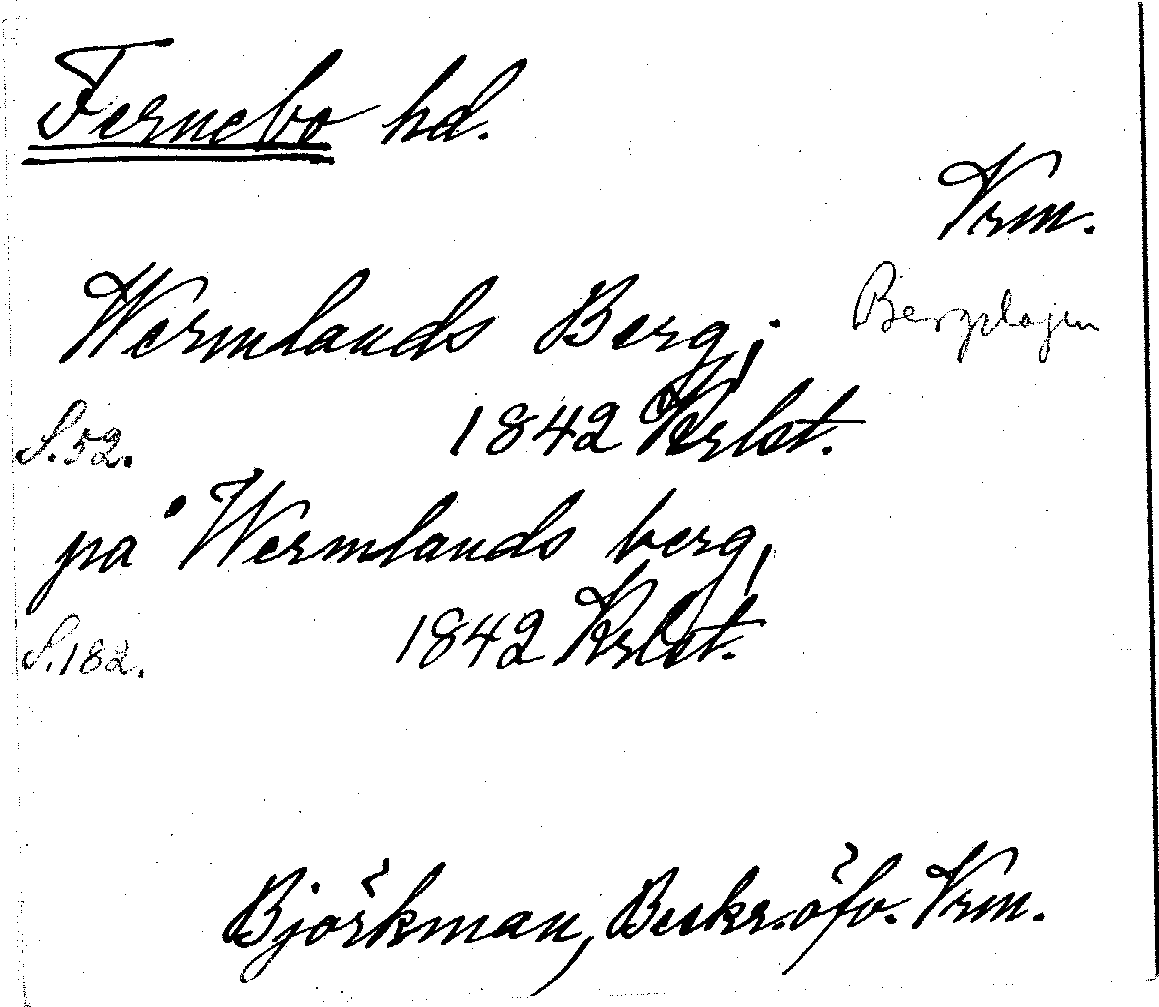 Fernebo hd.
Vrm.
Wermlands Berg,
Bergslagen
S.52. 1842 Krlst.
på Wermlands berg,
S.182. 1842 Krlst.
Björkman, Beskr. öfv. Vrm.